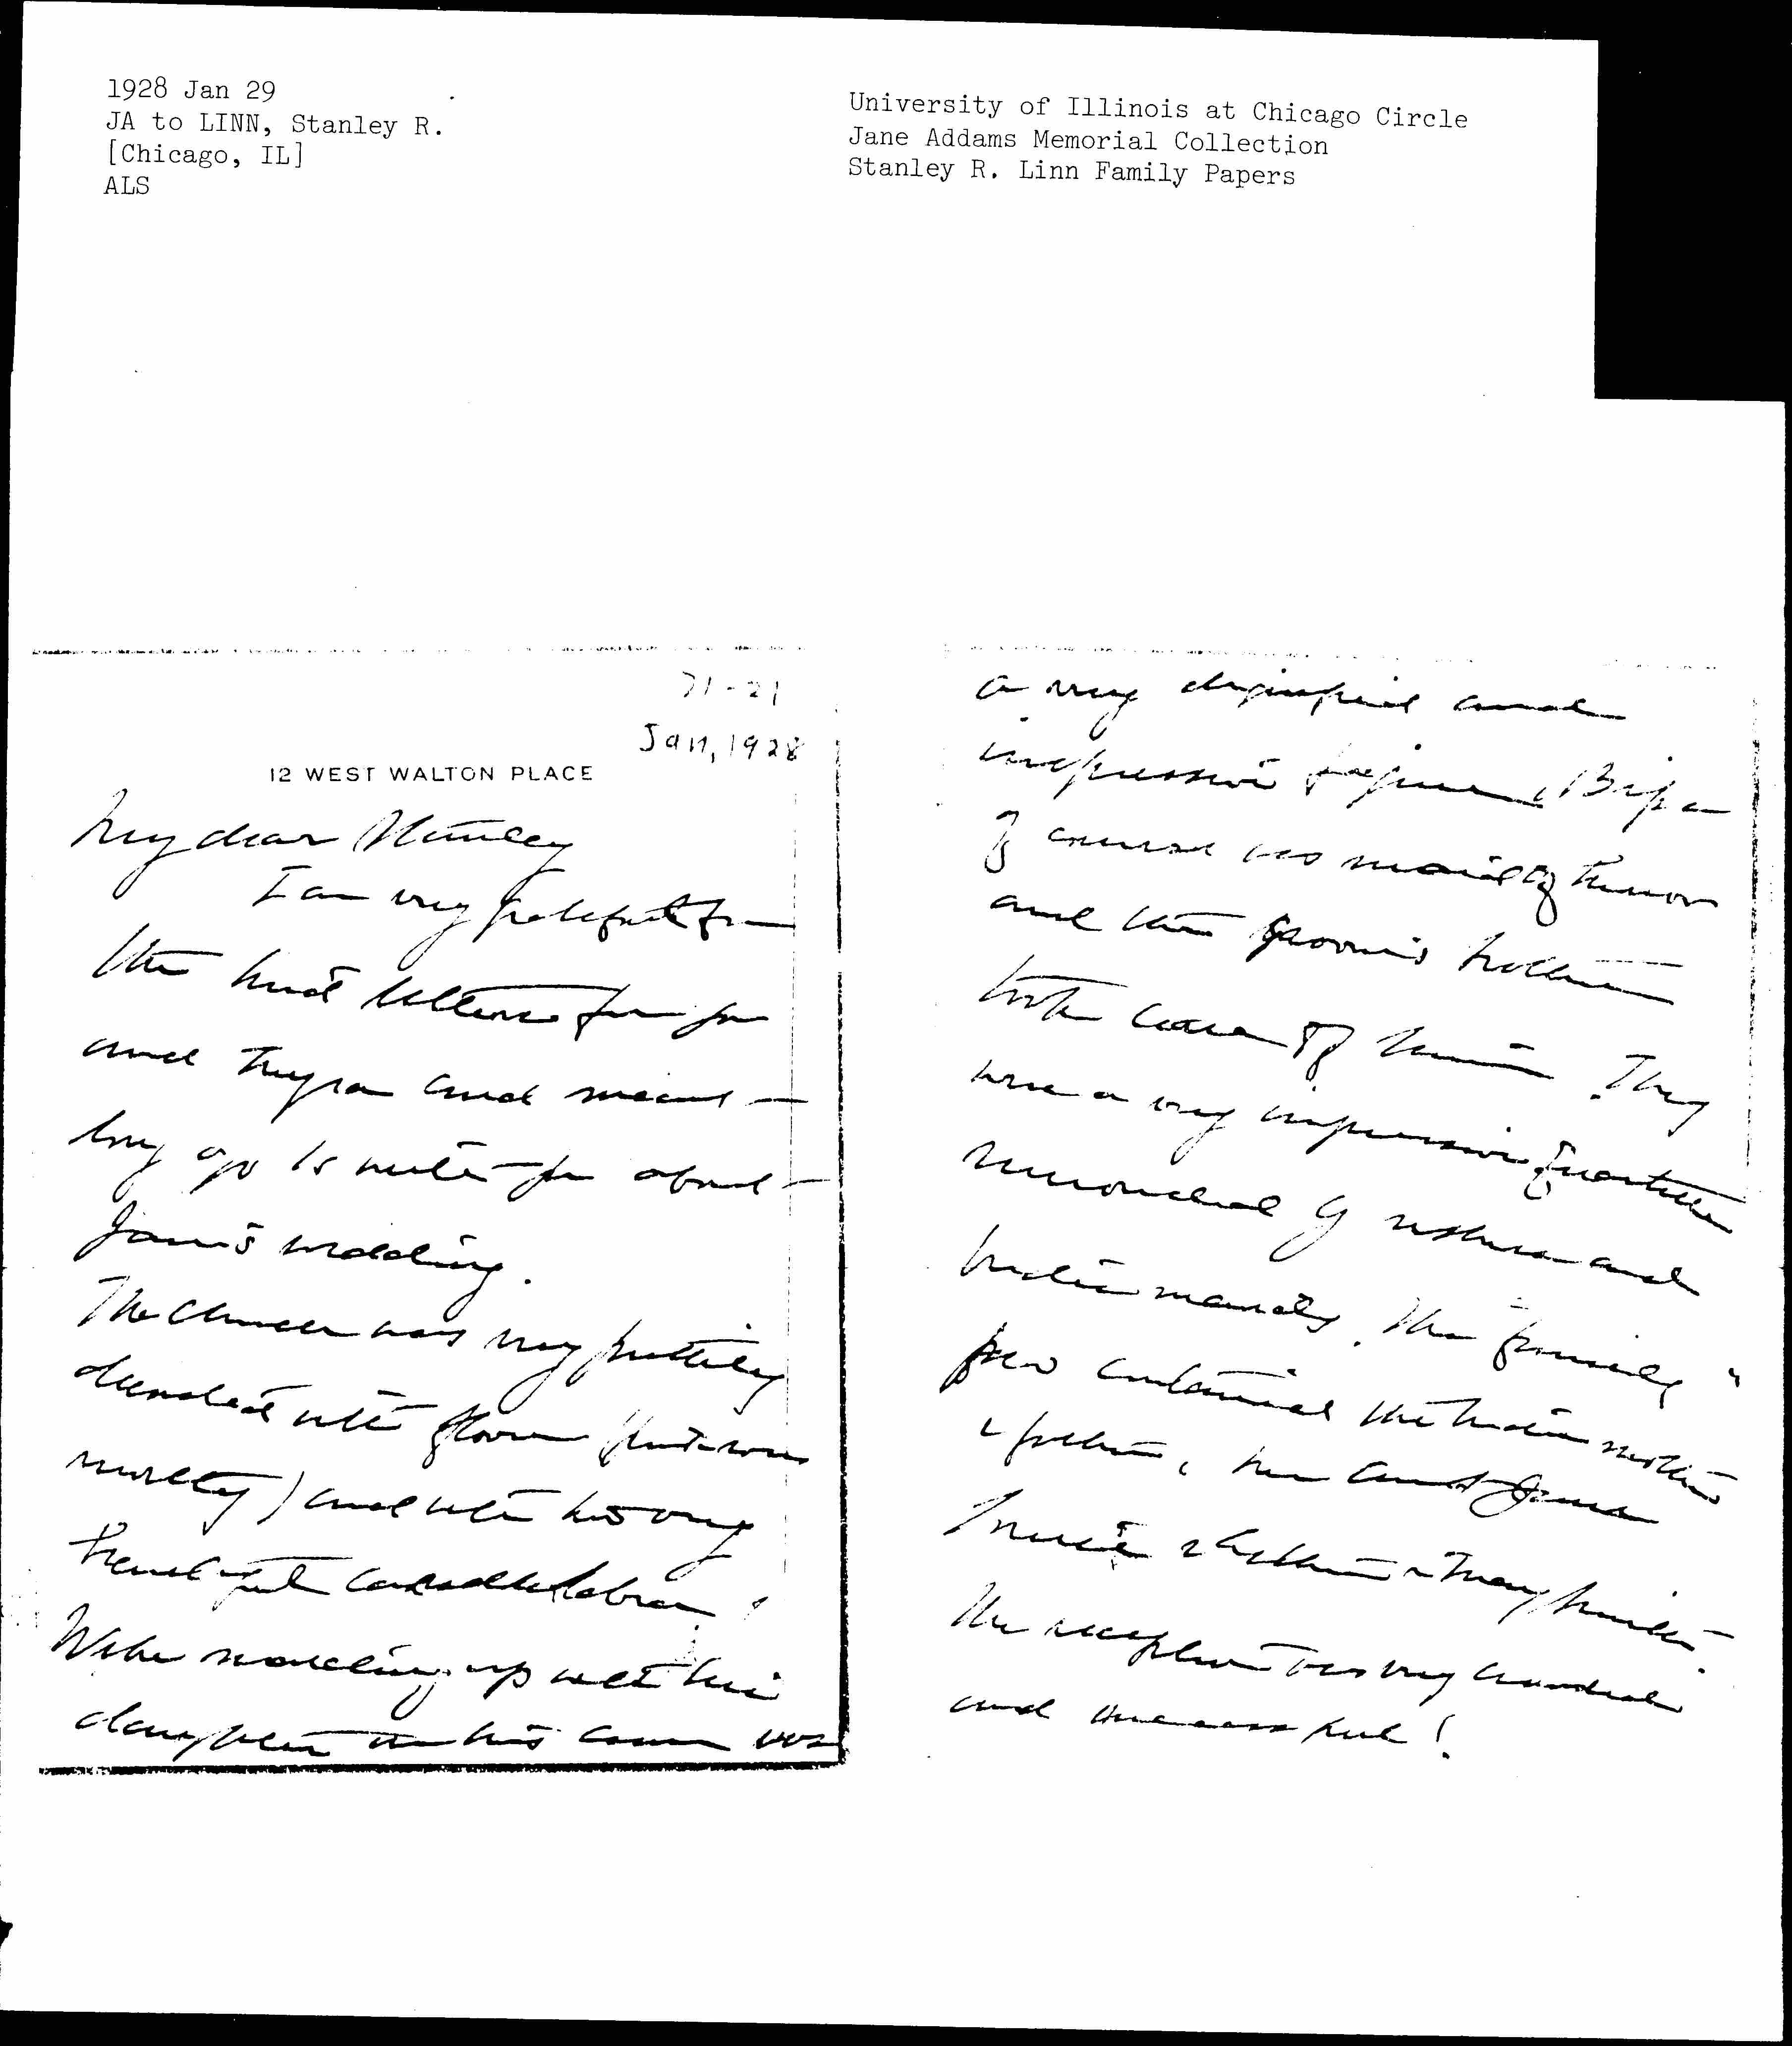 1928 Jan 29
JA to LINN, Stanley R.
[Chicago, IL]
ALS
University of Illinois at Chicago Circle
Jane Addams Memorial Collection
Stanley R. Linn Family Papers
71-21
Jan, 1928
12 WEST WALTON PLACE
My dear Stanley
I am very grateful for
the kind letters from you
and Myra and meant
long ago to write you about
Jane's wedding.
The Chancel was very prettily
decorated with flowers fruit
mostly) and with two very
candelabra!
Weber marching up with his
daughter on his arm was
a very dignified and
impressive figure,
of course was maid of honor
and the groom's brother
took care of him. They
were a very impressive quartette
surrounded by ushers and
brides maids. The "family"
pew contained the bride's mother
& father, her aunt Jane
& Mary
The reception was very crowded
and successful!